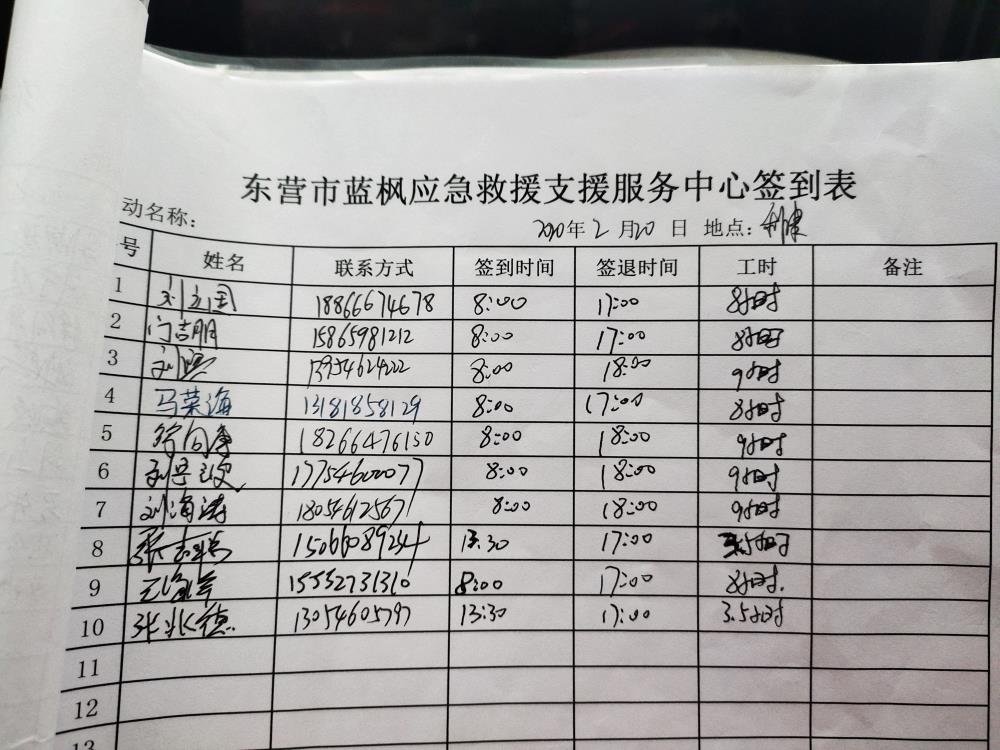 东营市蓝枫应急救援支援服务中心签到表
动名称：
2020年2月20日 地点：利津
号 姓名 联系方式 签到时间 签退时间 工时 备注
1 刘立国 18866674678 8:00 17:00 8小时
2 门吉朋 15865981212 8:00 17:00 8小时
3 刘 13954624222 8:00 18:00 9小时
4 马荣海 13181858129 8:00 17:00 8小时
5 18266476150 8:00 18:00 9小时
6 刘 17754600077 8:00 18:00 9小时
7 刘海涛 18054612567 8:00 18:00 9小时
8 张志 15066089234 13:30 17:00 3.5小时
9 15552731310 8:00 17:00 8小时.
10 张兆德 13054605797 13:30 17:00 3.5小时
11
12
13